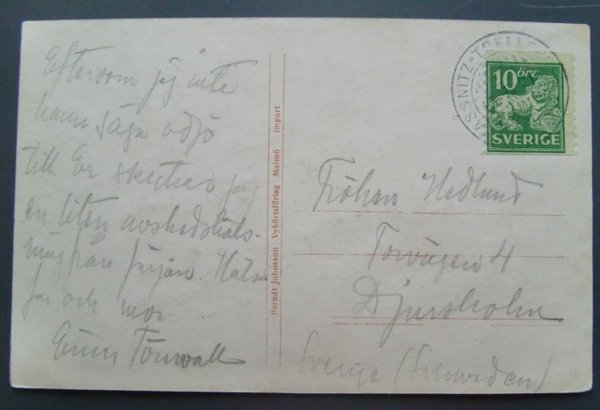 Eftersom jag inte
hann säga adjö
till Er skickar jag
en liten avskedshäls-
ning från färjan. Hälsa
far och mor
Törnwall
Berndt Johnsson Vykortsförlag Malmö Import
ASSNITZ-TRELLE
10 ÖRE
SVERIGE
Fröken Hedlund
Torvägen 4
Djursholm
Sverige (Schweden)